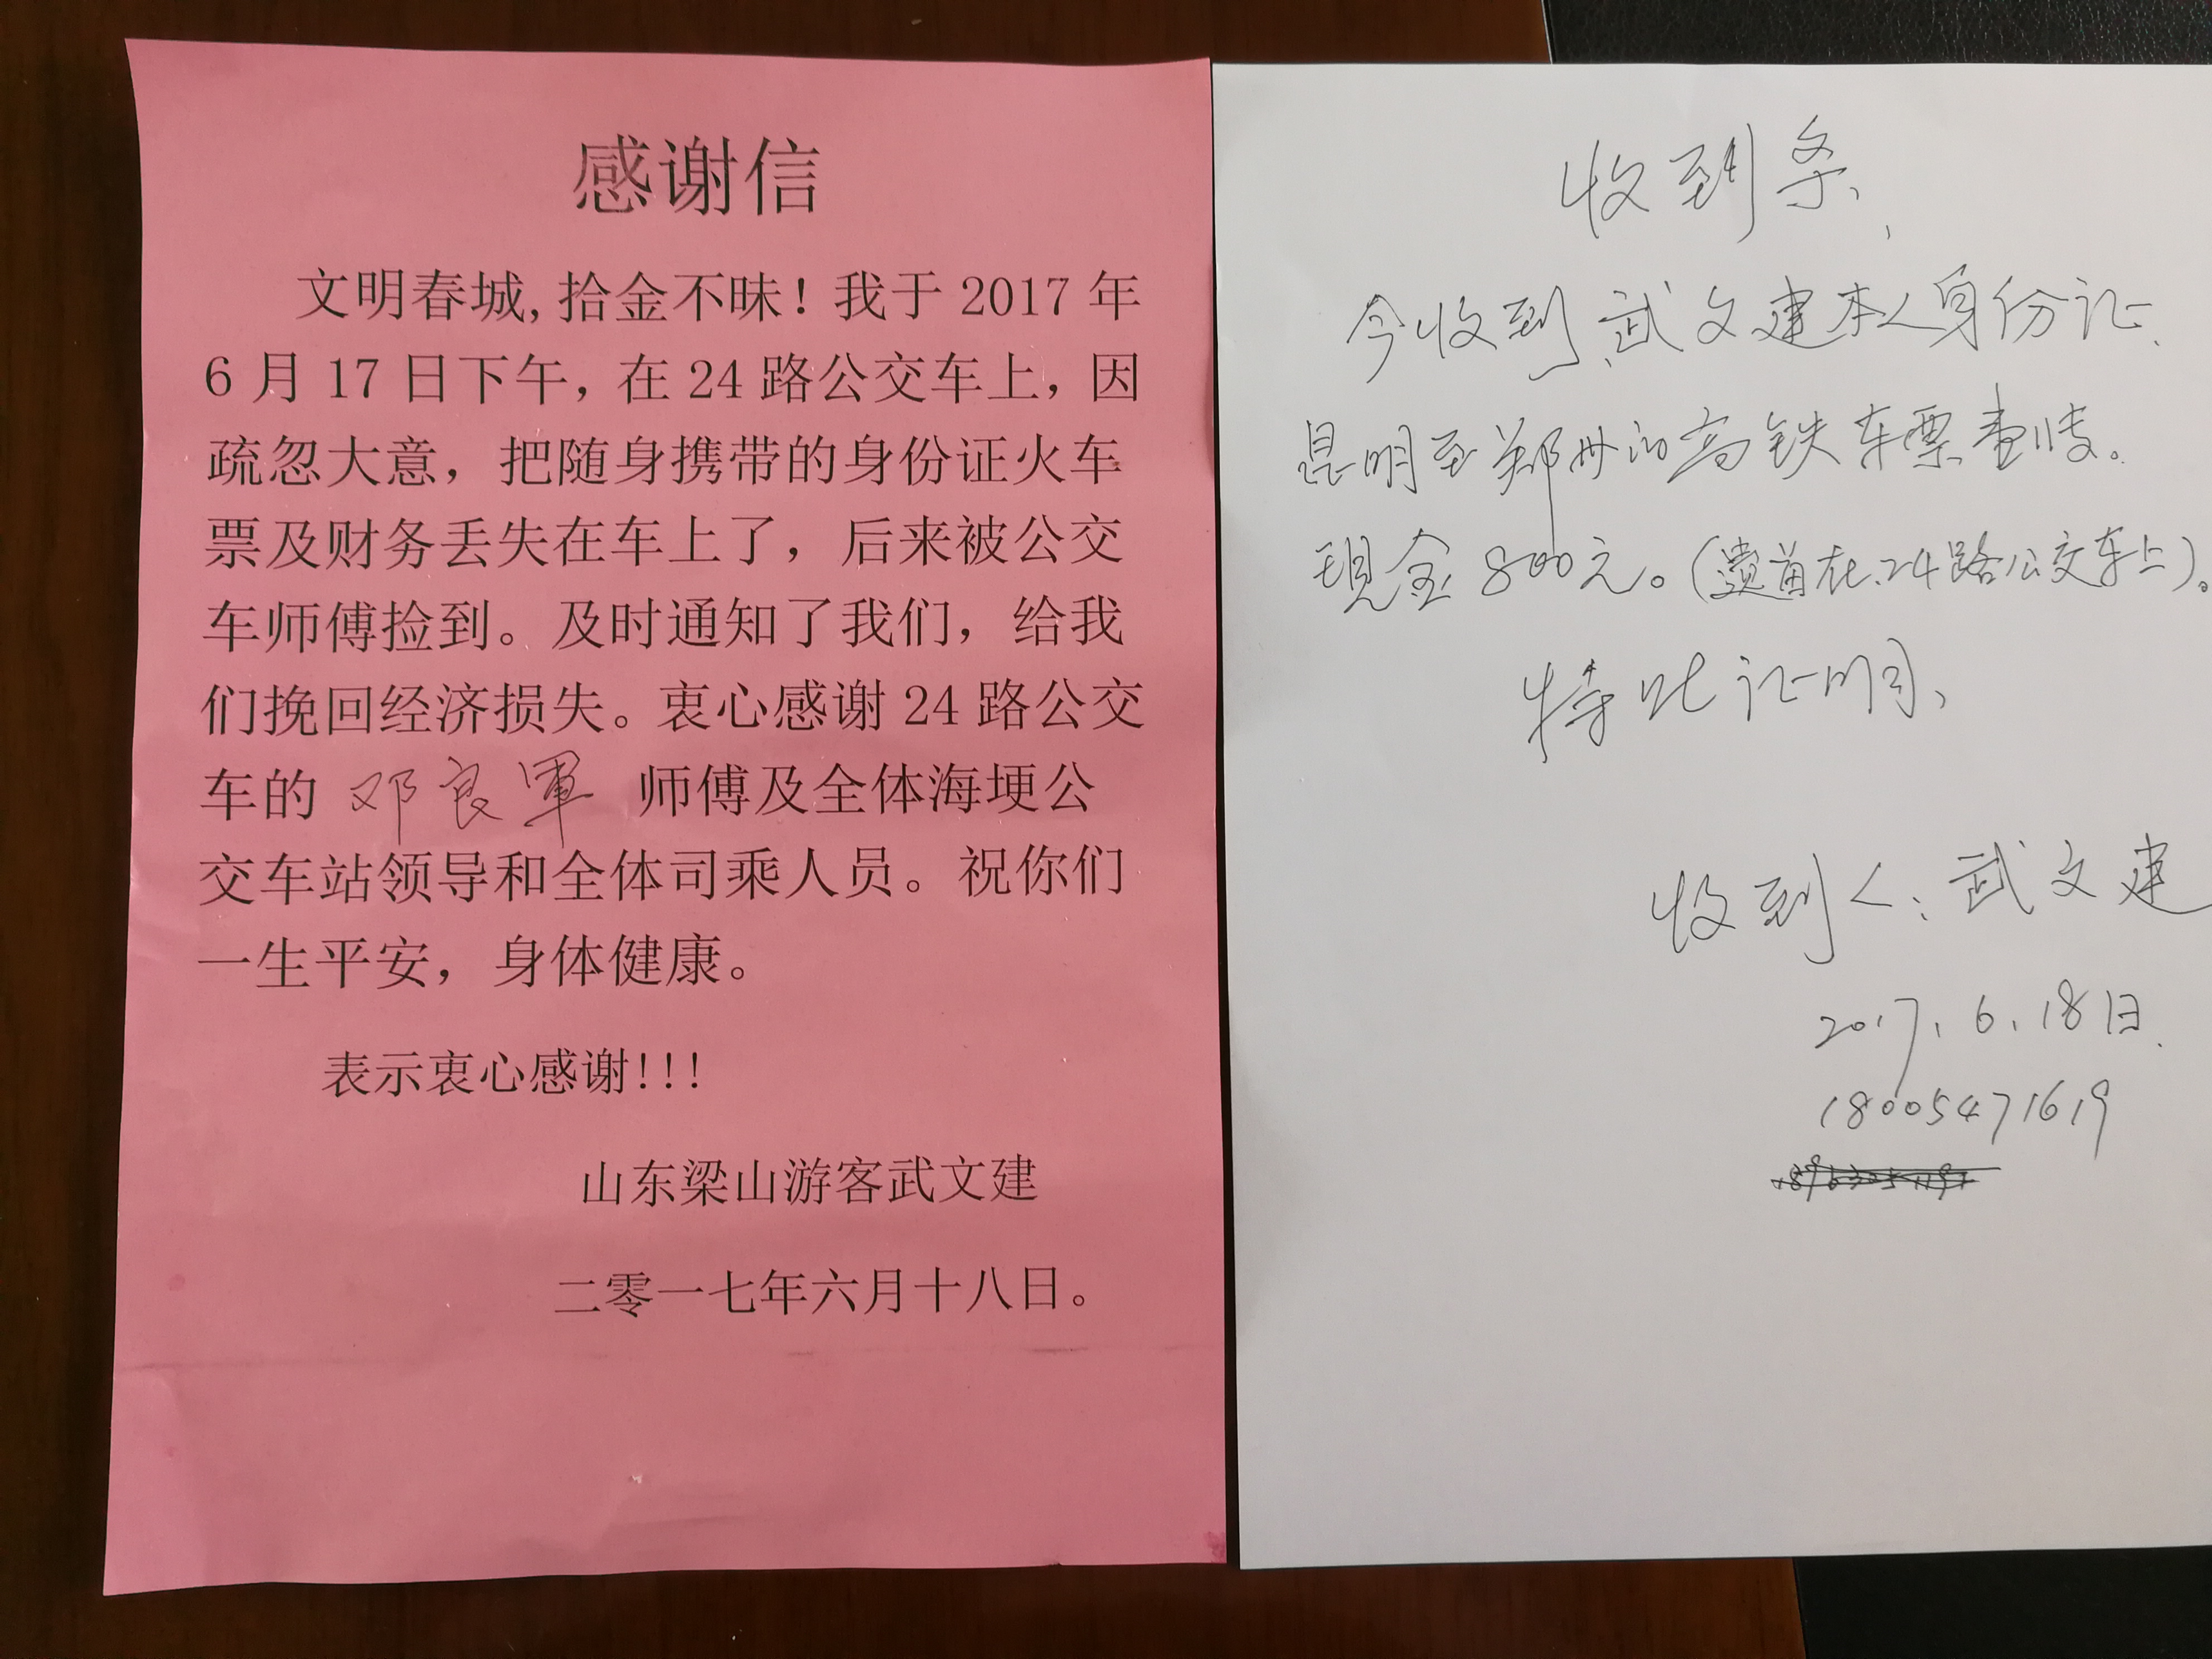 感谢信
文明春城,拾金不昧！我于 2017 年
6 月 17 日下午，在 24 路公交车上，因
疏忽大意，把随身携带的身份证火车
票及财务丢失在车上了，后来被公交
车师傅捡到。及时通知了我们，给我
们挽回经济损失。衷心感谢 24 路公交
车的 邓良軍 师傅及全体海埂公
交车站领导和全体司乘人员。祝你们
一生平安，身体健康。
表示衷心感谢!!!
山东梁山游客武文建
二零一七年六月十八日。
收到条、
今收到武文建本人身份证、
昆明至郑州的高铁车票壹张。
现金800元。(遗留在24路公交车上)。
特此证明、
收到人：武文建
2017.6.18日.
18005471619